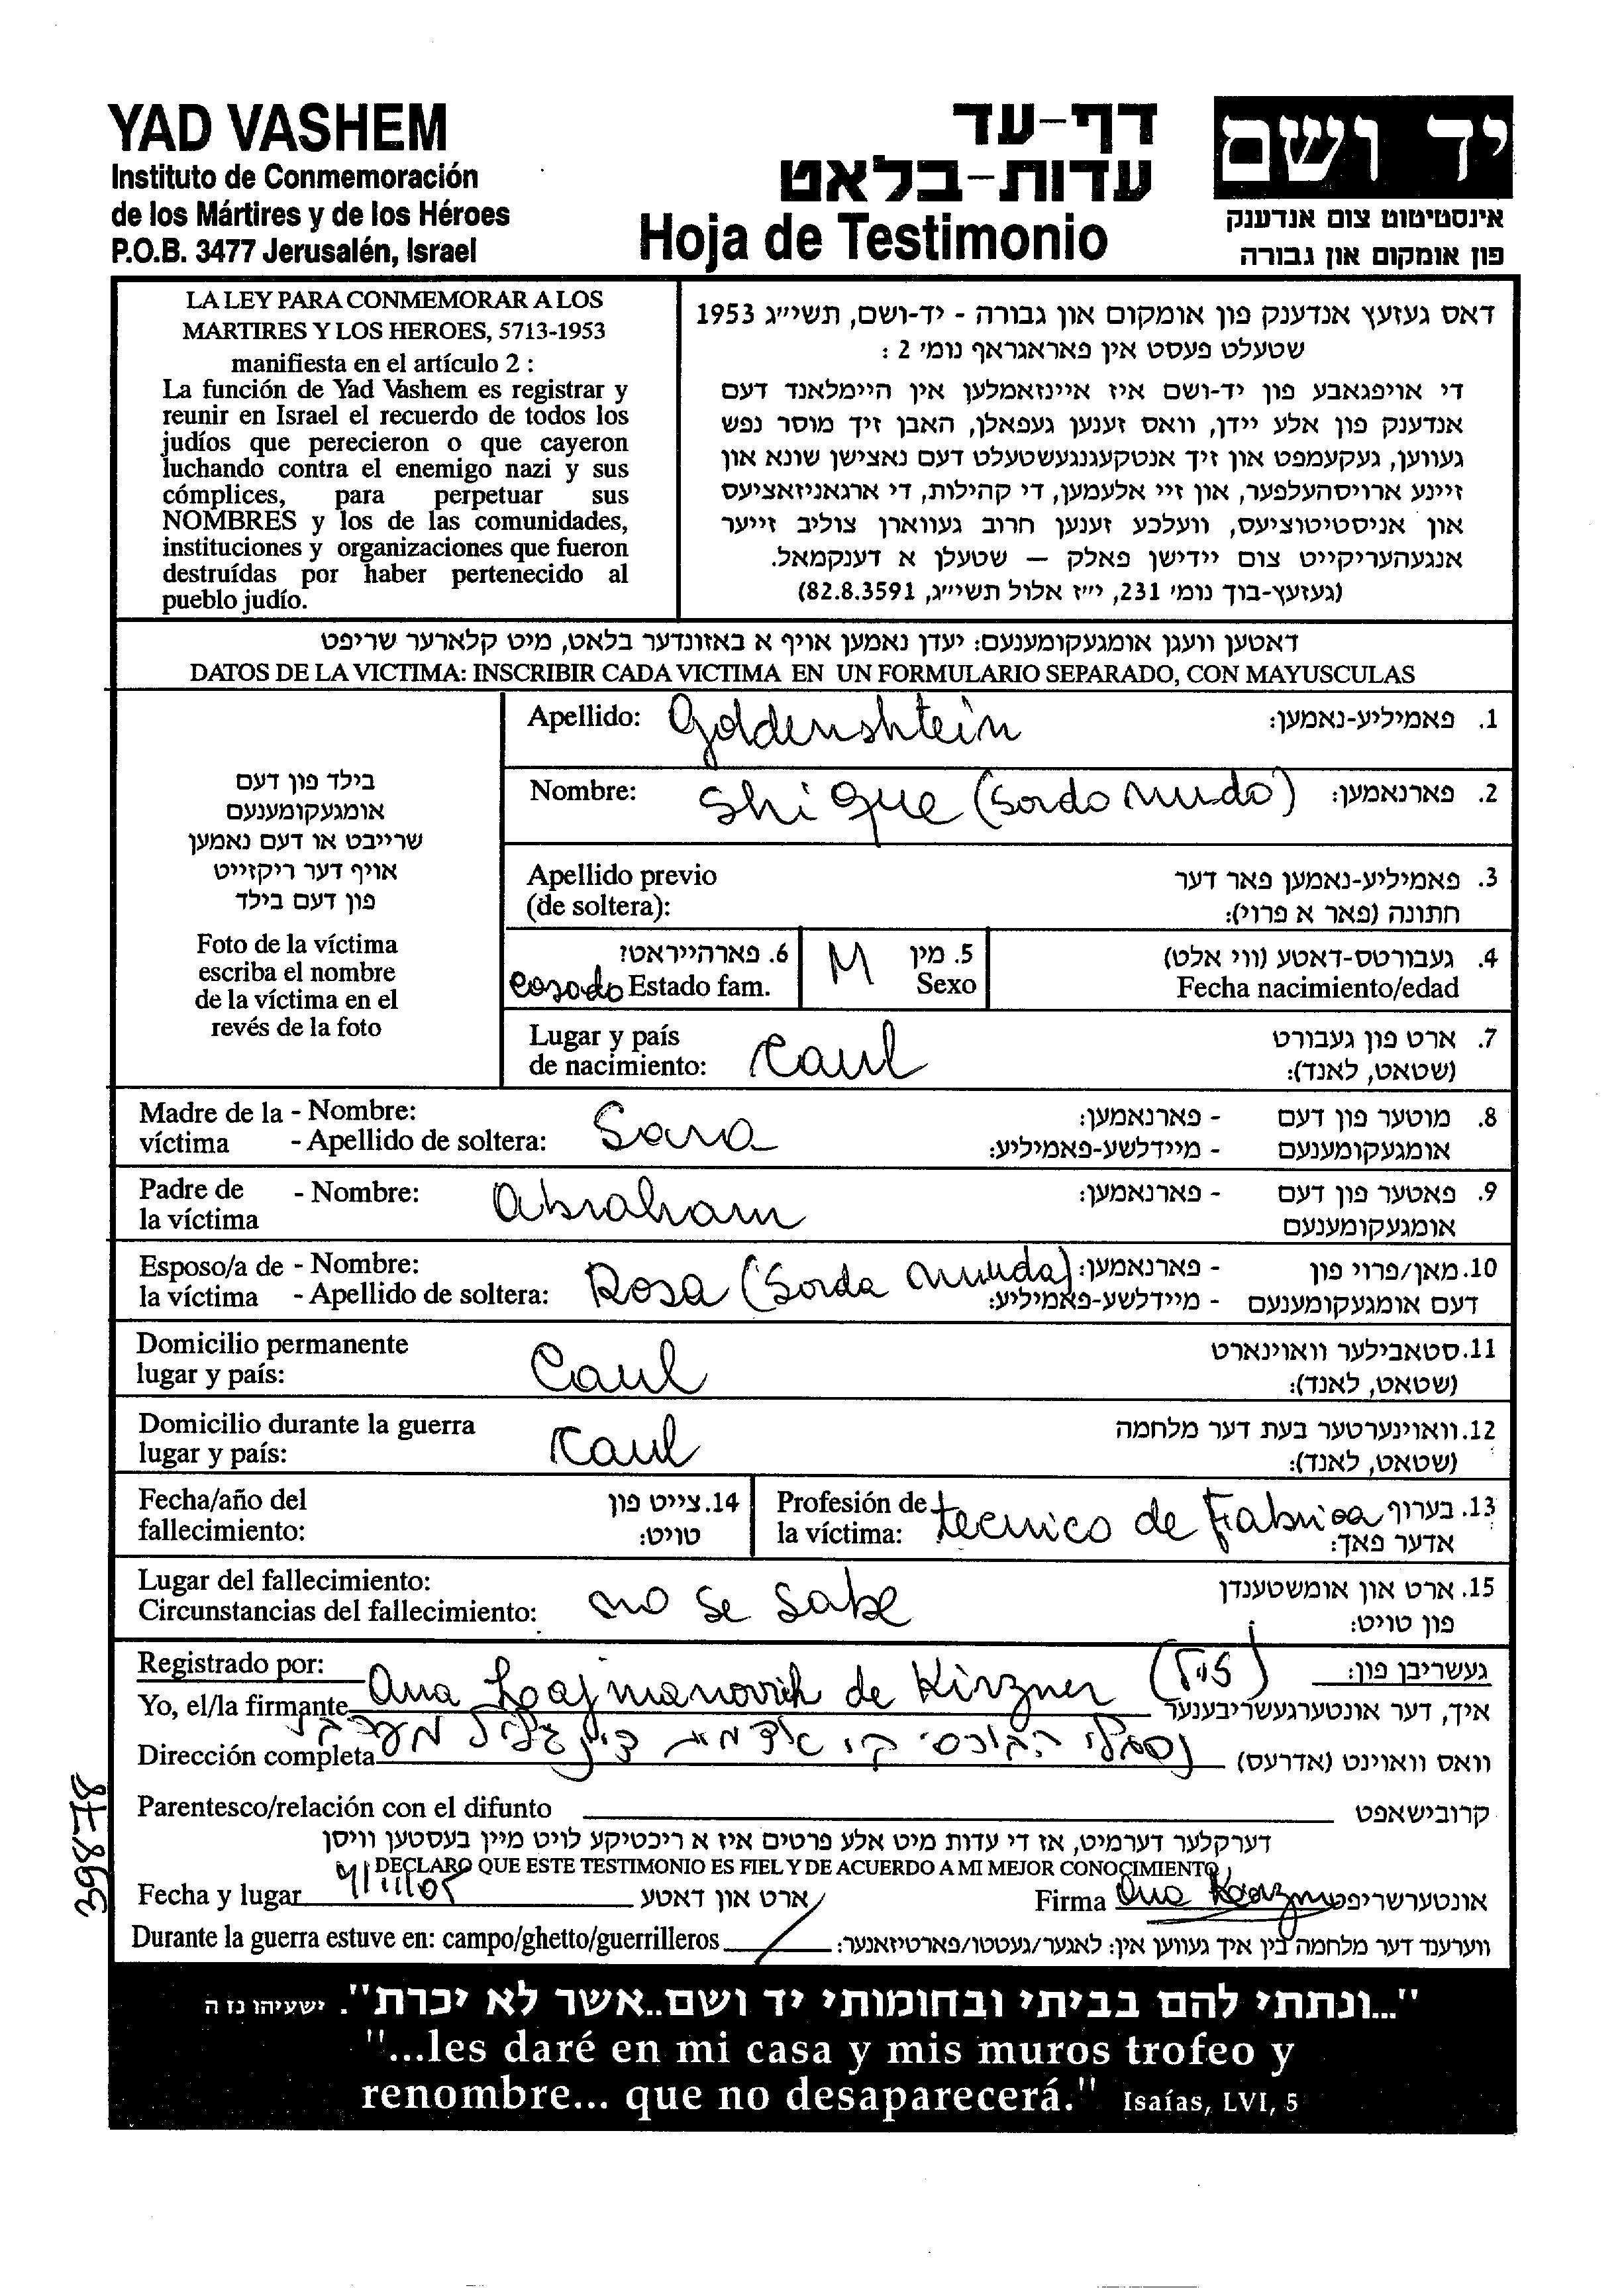 YAD VASHEM
Instituto de Conmemoración
de los Mártires y de los Héroes
P.O.B. 3477 Jerusalén, Israel
דף-עד
עדות-בלאט
Hoja de Testimonio
יד ושם
אינסטיטוט צום אנדענק
פון אומקום און גבורה
LA LEY PARA CONMEMORAR A LOS
MARTIRES Y LOS HEROES, 5713-1953
manifiesta en el artículo 2 :
La función de Yad Vashem es registrar y
reunir en Israel el recuerdo de todos los
judíos que perecieron o que cayeron
luchando contra el enemigo nazi y sus
cómplices, para perpetuar sus
NOMBRES y los de las comunidades,
instituciones y organizaciones que fueron
destruídas por haber pertenecido al
pueblo judío.
דאס געזעץ אנדענק פון אומקום און גבורה - יד-ושם, תשי״ג 1953
שטעלט פעסט אין פאראגראף נומ׳ 2 :
די אויפגאבע פון יד-ושם איז איינזאמלען אין היימלאנד דעם
אנדענק פון אלע יידן, וואס זענען געפאלן, האבן זיך מוסר נפש
געווען, געקעמפט און זיך אנטקעגנגעשטעלט דעם נאצישן שונא און
זיינע ארויסהעלפער, און זיי אלעמען, די קהילות, די ארגאניזאציעס
און אניסטיטוציעס, וועלכע זענען חרוב געווארן צוליב זייער
אנגעהעריקייט צום יידישן פאלק – שטעלן א דענקמאל.
(געזעץ-בוך נומ׳ 231, י״ז אלול תשי״ג, 82.8.3591)
דאטען וועגן אומגעקומענעם: יעדן נאמען אויף א באזונדער בלאט, מיט קלארער שריפט
DATOS DE LA VICTIMA: INSCRIBIR CADA VICTIMA EN UN FORMULARIO SEPARADO, CON MAYUSCULAS
בילד פון דעם
אומגעקומענעם
שרייבט או דעם נאמען
אויף דער ריקזייט
פון דעם בילד
Foto de la víctima
escriba el nombre
de la víctima en el
revés de la foto
Apellido: Goldenshtein 1. פאמיליע-נאמען:
Nombre: Shique (sordo mudo) 2. פארנאמען:
Apellido previo 3. פאמיליע-נאמען פאר דער
(de soltera): חתונה (פאר א פרוי):
6. פארהייראט? M 5. מין 4. געבורטס-דאטע (ווי אלט)
casado Estado fam. Sexo Fecha nacimiento/edad
Lugar y país 7. ארט פון געבורט
de nacimiento: Kaul (שטאט, לאנד):
Madre de la - Nombre: Sara - פארנאמען: 8. מוטער פון דעם
víctima - Apellido de soltera: - מיידלשע-פאמיליע: אומגעקומענעם
Padre de - Nombre: Abraham - פארנאמען: 9. פאטער פון דעם
la víctima אומגעקומענעם
Esposo/a de - Nombre: Rosa (Sorda Muuda) - פארנאמען: 10. מאן/פרוי פון
la víctima - Apellido de soltera: - מיידלשע-פאמיליע: דעם אומגעקומענעם
Domicilio permanente 11. סטאבילער וואוינארט
lugar y país: Caul (שטאט, לאנד):
Domicilio durante la guerra 12. וואוינערטער בעת דער מלחמה
lugar y país: Kaul (שטאט, לאנד):
Fecha/año del 14. צייט פון Profesión de tecnico de Fabrica 13. בערוף
fallecimiento: טויט: la víctima: אדער פאך:
Lugar del fallecimiento: no se sabe 15. ארט און אומשטענדן
Circunstancias del fallecimiento: פון טויט:
Registrado por: געשריבן פון:
Yo, el/la firmante Ana de Kirzner איך, דער אונטערגעשריבענער
Dirección completa וואס וואוינט (אדרעס)
Parentesco/relación con el difunto קרובישאפט
דערקלער דערמיט, אז די עדות מיט אלע פרטים איז א ריכטיקע לויט מיין בעסטען וויסן
DECLARO QUE ESTE TESTIMONIO ES FIEL Y DE ACUERDO A MI MEJOR CONOCIMIENTO
Fecha y lugar ארט און דאטע Firma Ana אונטערשריפט
Durante la guerra estuve en: campo/ghetto/guerrilleros ווערענד דער מלחמה בין איך געווען אין: לאגער/געטטו/פארטיזאנער:
39878
"...ונתתי להם בביתי ובחומותי יד ושם..אשר לא יכרת". ישעיהו נז ה
"...les daré en mi casa y mis muros trofeo y
renombre... que no desaparecerá." Isaías, LVI, 5